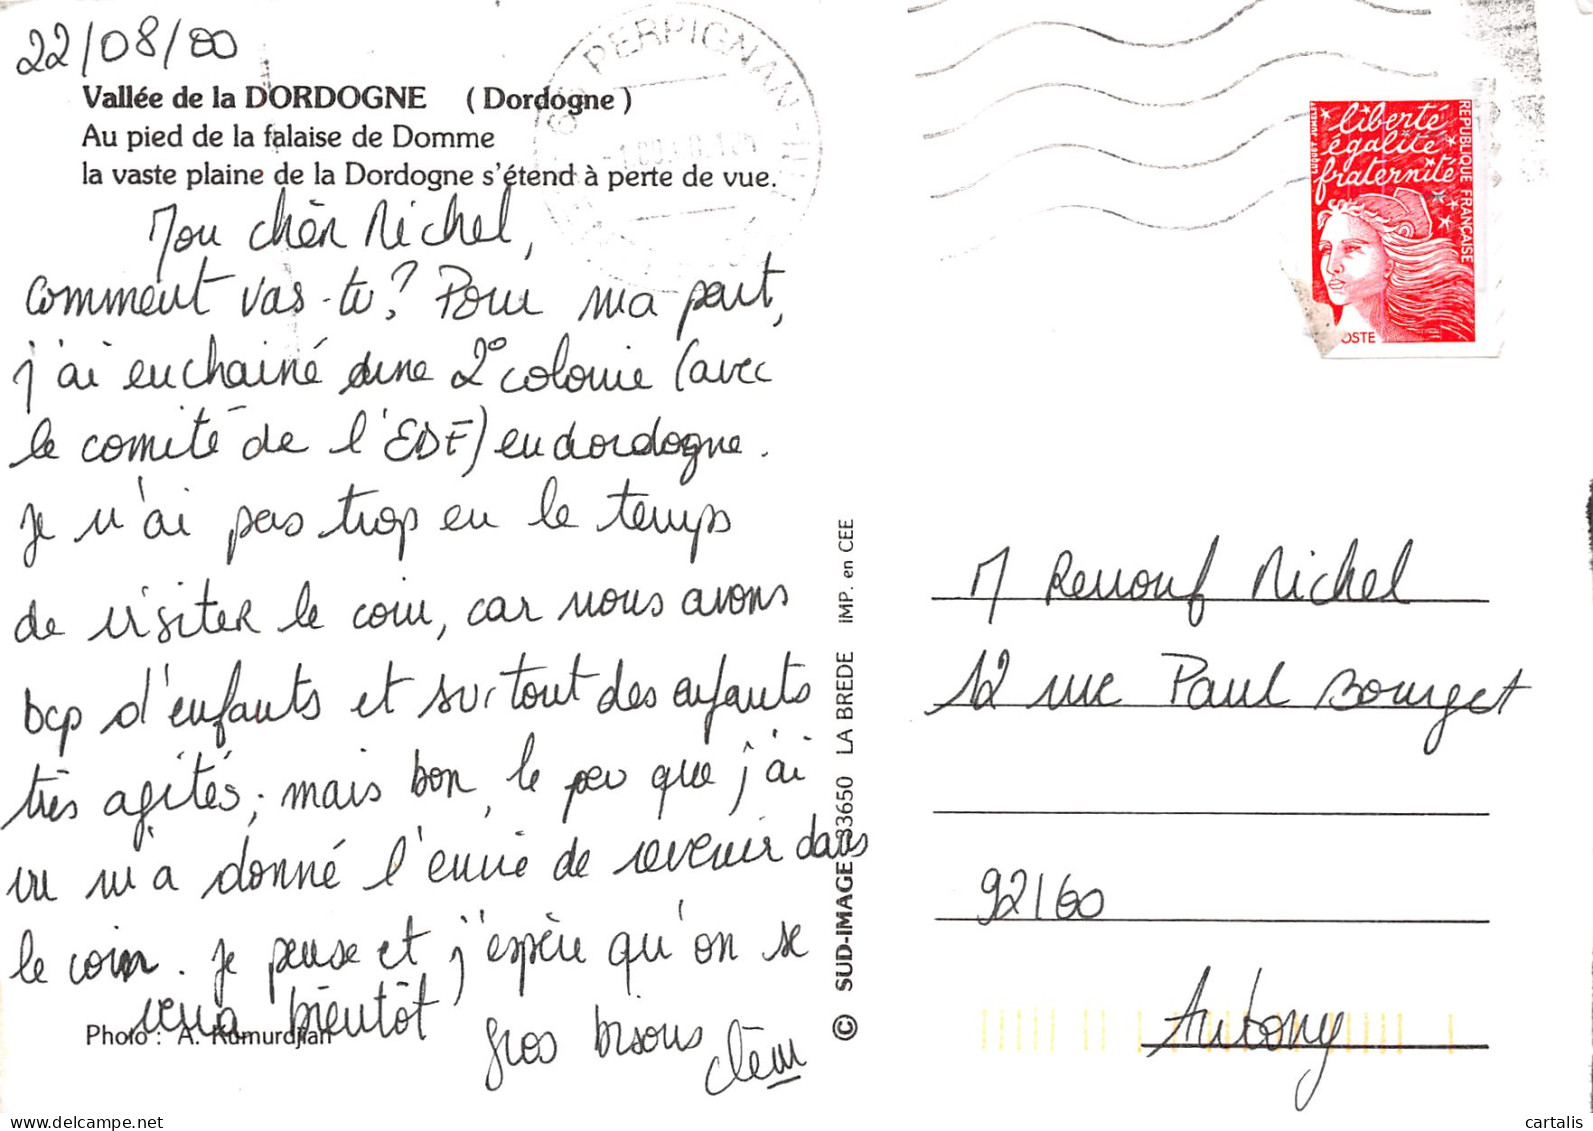 22/08/00
Vallée de la DORDOGNE (Dordogne)
Au pied de la falaise de Domme
la vaste plaine de la Dordogne s'étend à perte de vue.
Mon chèr Michel,
comment vas-tu? Pour ma part,
j'ai enchainé une 2° colonie (avec
le comité de l'EDF) en dordogne.
Je n'ai pas trop eu le temps
de visiter le coin, car nous avons
bcp d'enfants et surtout des enfants
très agités; mais bon, le peu que j'ai
vu m'a donné l'envie de revenir dans
le coin. Je pense et j'espère qu'on se
verra bientôt
gros bisous
Clém
Photo : A. Kumurdjian
© SUD-IMAGE 33650 LA BREDE IMP. en CEE
PERPIGNAN
liberté
égalité
fraternité
REPUBLIQUE FRANÇAISE
OSTE
M Renouf Michel
12 rue Paul Bourget
92160
Antony
cartalis
www.delcampe.net